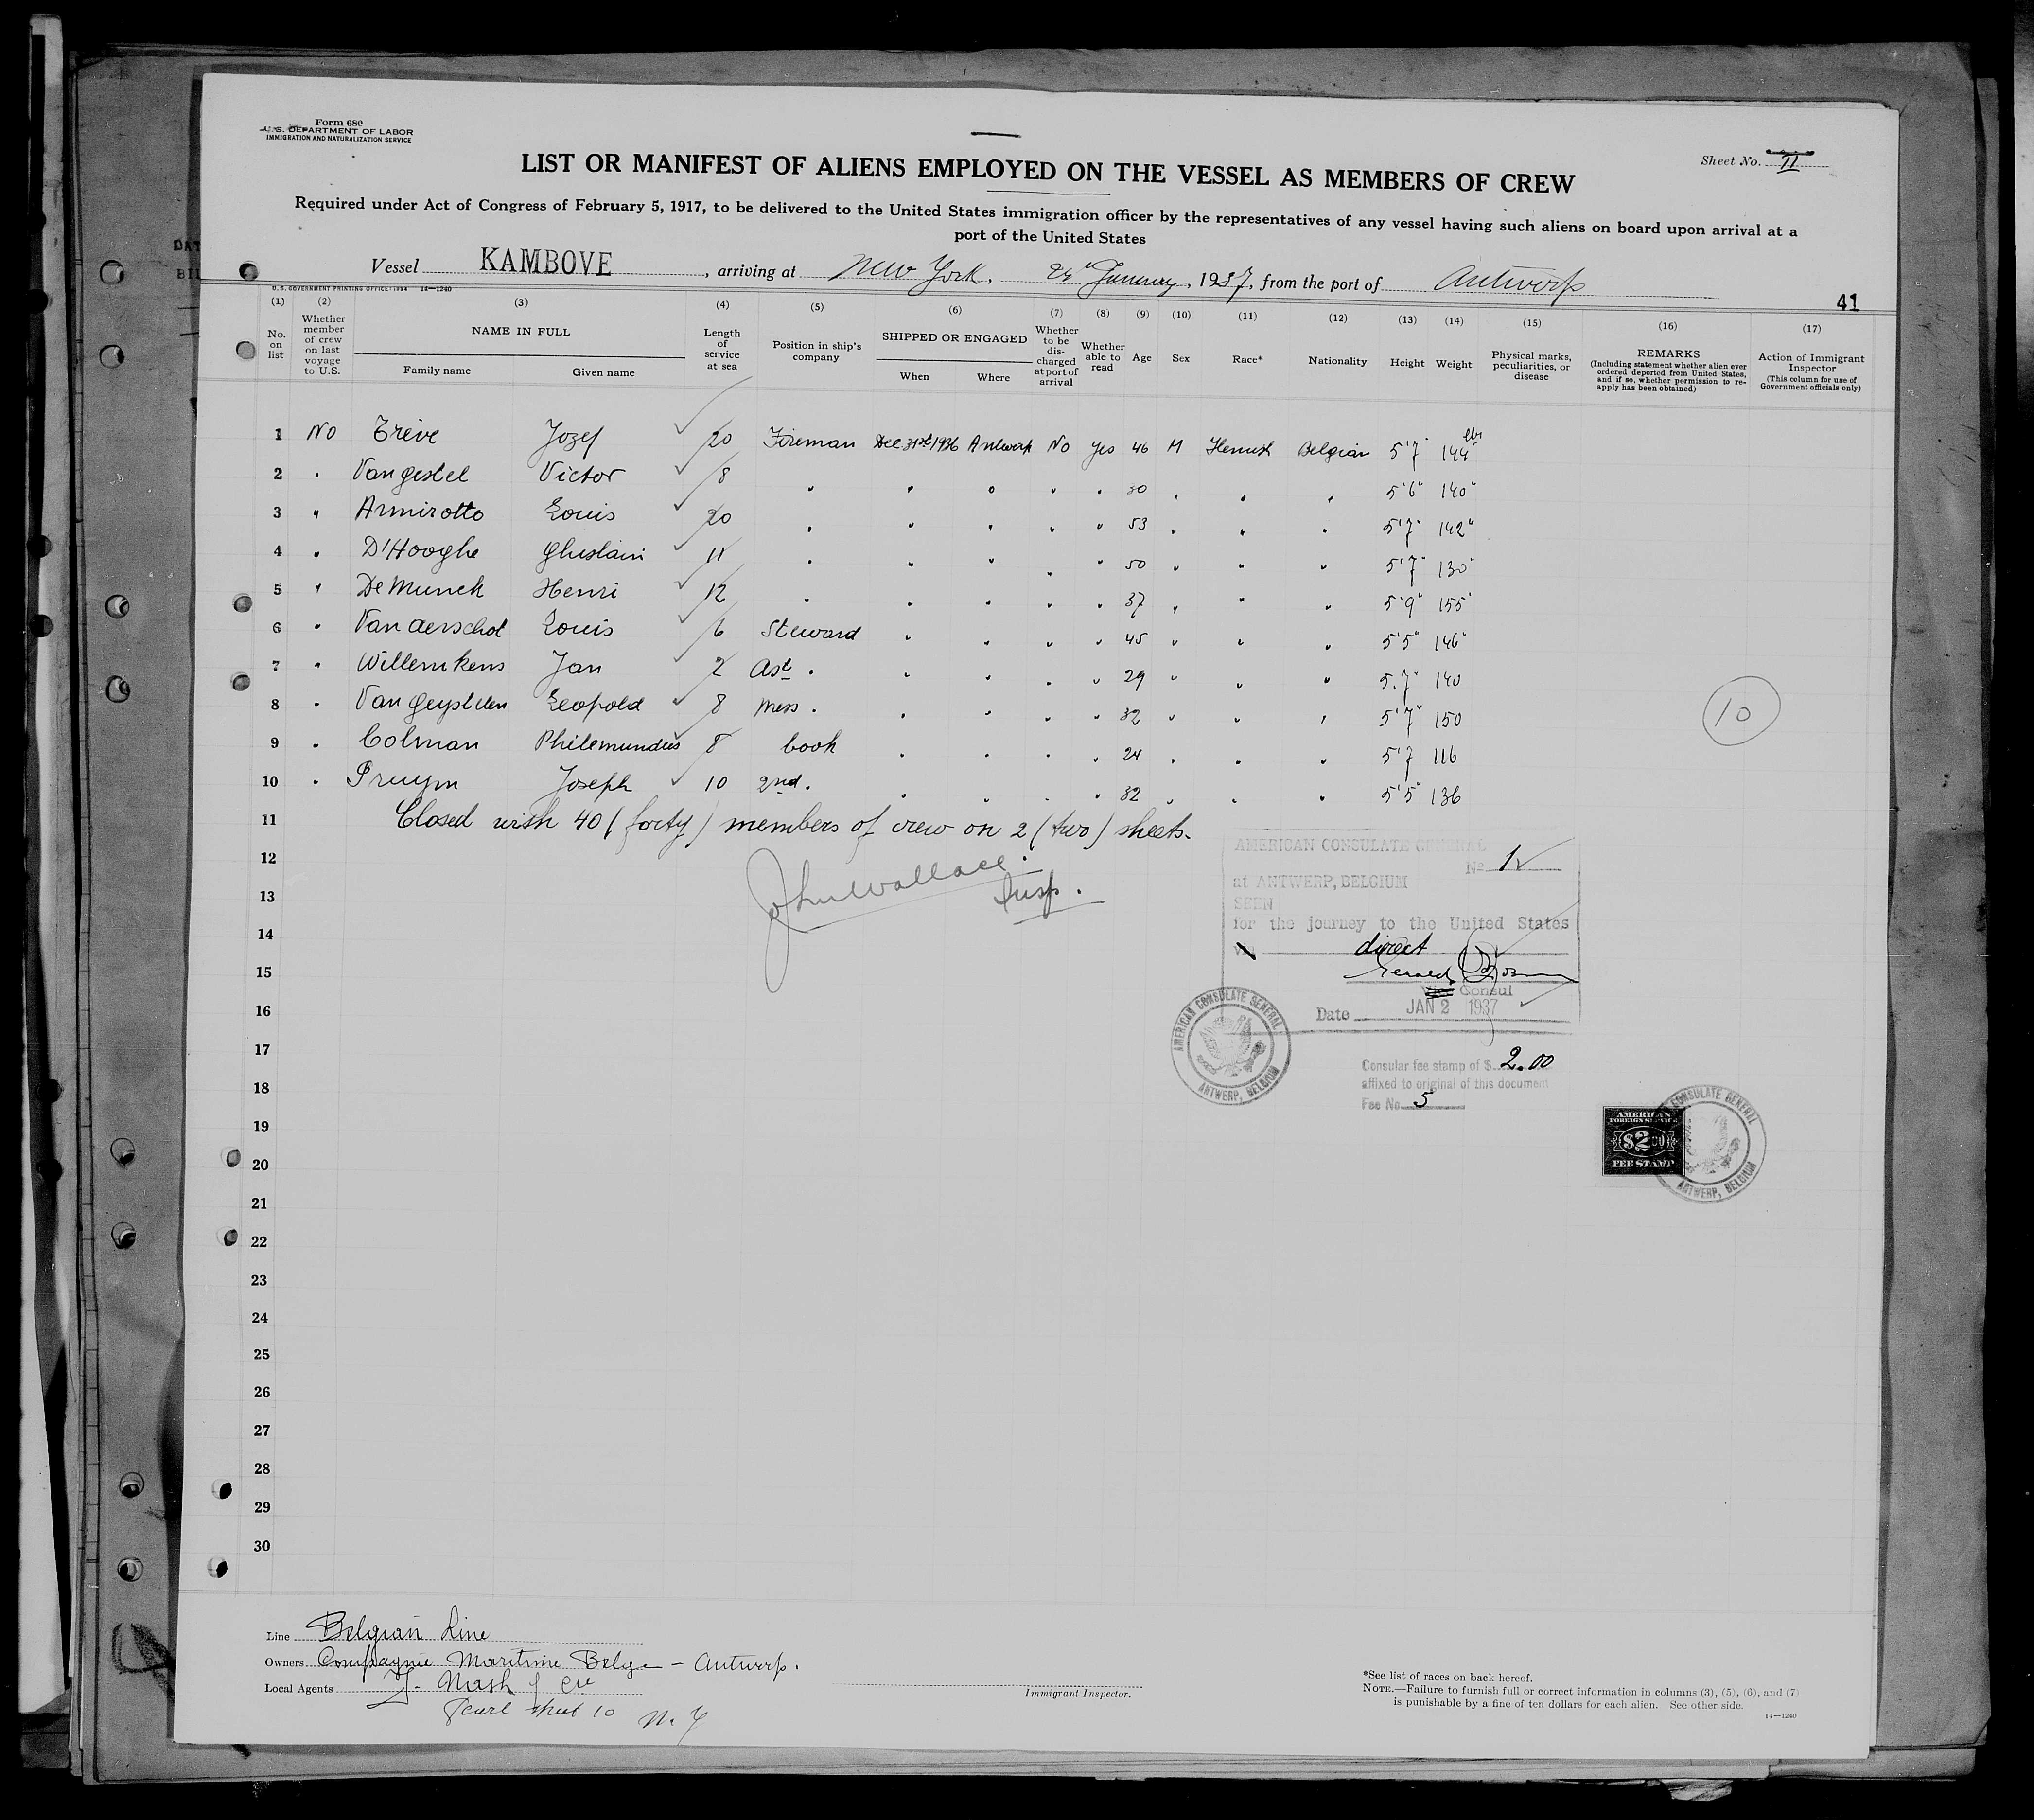 Form 680
U. S. DEPARTMENT OF LABOR
IMMIGRATION AND NATURALIZATION SERVICE
LIST OR MANIFEST OF ALIENS EMPLOYED ON THE VESSEL AS MEMBERS OF CREW
Sheet No. II
Required under Act of Congress of February 5, 1917, to be delivered to the United States immigration officer by the representatives of any vessel having such aliens on board upon arrival at a
port of the United States
Vessel KAMBOVE, arriving at New York, January, 1937, from the port of Antwerp
U. S. GOVERNMENT PRINTING OFFICE: 1934 14—1240
41
(1) No. on list
(2) Whether member of crew on last voyage to U.S.
(3) NAME IN FULL Family name Given name
(4) Length of service at sea
(5) Position in ship's company
(6) SHIPPED OR ENGAGED When Where
(7) Whether to be discharged at port of arrival
(8) Whether able to read
(9) Age
(10) Sex
(11) Race*
(12) Nationality
(13) Height
(14) Weight
(15) Physical marks, peculiarities, or disease
(16) REMARKS (Including statement whether alien ever ordered deported from United States, and if so, whether permission to re-apply has been obtained)
(17) Action of Immigrant Inspector (This column for use of Government officials only)
1 No Treve Jozef 20 Fireman Dec 31st 1936 Antwerp No Yes 46 M Flemish Belgian 5'7" 144 lbs
2 " Van gestel Victor 8 " " " " " 30 " " " 5'6" 140"
3 " Armirotto Louis 20 " " " " " 53 " " " 5'7" 142"
4 " D'Hooghe Ghislain 11 " " " " " 50 " " " 5'7" 130"
5 " De Munck Henri 12 " " " " " 37 " " " 5'9" 155"
6 " Van aerschot Louis 6 Steward " " " " 45 " " " 5'5" 146"
7 " Willemkens Jan 2 Ast " " " " " 29 " " " 5.7" 140
8 " Van Leopold 8 Mess " " " " " 32 " " " 5'7" 150
9 " Colman Philemundus 8 Cook " " " " 24 " " " 5'7 116
10 " Pruym Joseph 10 2nd " " " " " 32 " " " 5'5" 136
10
11 Closed with 40 (forty) members of crew on 2 (two) sheets.
12
13
14
15
16
17
18
19
20
21
22
23
24
25
26
27
28
29
30
John Wallace
Insp.
AMERICAN CONSULATE GENERAL
No 1
at ANTWERP, BELGIUM
SEEN
for the journey to the United States
direct
Consul
Date JAN 2 1937
AMERICAN CONSULATE GENERAL
ANTWERP, BELGIUM
Consular fee stamp of $ 2.00
affixed to original of this document
Fee No. 5
AMERICAN
FOREIGN SERVICE
$2.00
FEE STAMP
CONSULATE GENERAL
ANTWERP, BELGIUM
Line Belgian Line
Owners Compagnie Maritime Belge — Antwerp.
Local Agents
Pearl 10 N. Y
Immigrant Inspector.
*See list of races on back hereof.
NOTE.—Failure to furnish full or correct information in columns (3), (5), (6), and (7)
is punishable by a fine of ten dollars for each alien. See other side.
14—1240